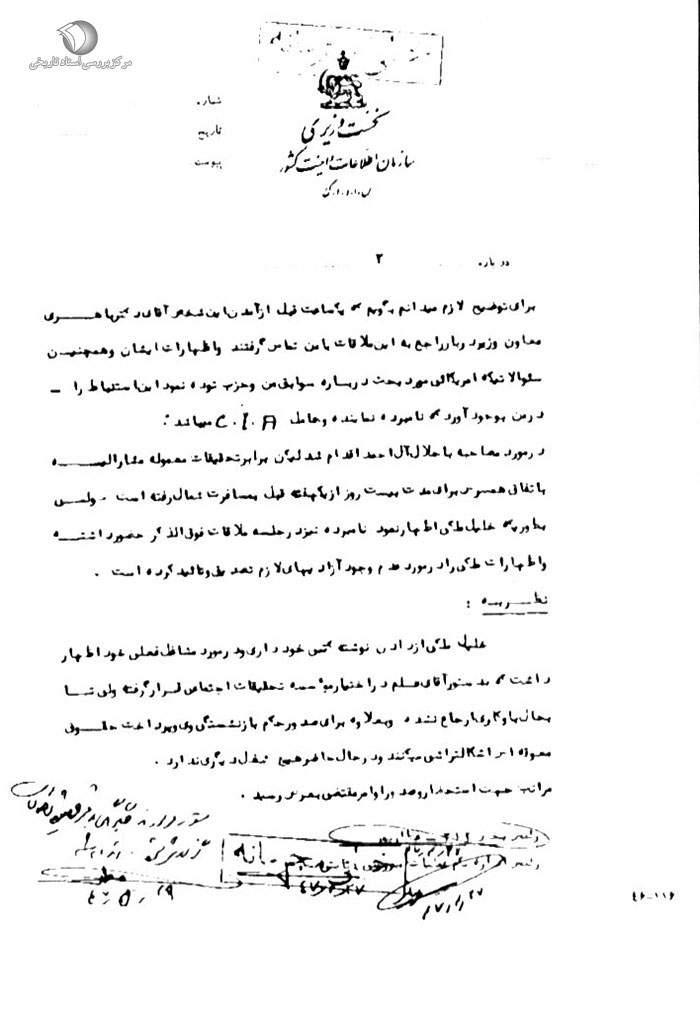 مرکز بررسی اسناد تاریخی
شماره
تاریخ
پیوست
نخست وزیری
سازمان اطلاعات و امنیت کشور
س.ا.و.ا.ک
درباره ۲
برای توضیح لازم میدانم بگویم که یکساعت قبل از آمدن این شخص آقای دکتر باهری
معاون وزیر دربار راجع به این ملاقات با من تماس گرفتند و اظهارات ایشان و همچنین
سئوالاتیکه امریکائی مورد بحث درباره سوابق من و حزب توده نمود این استنباط را -
در من بوجود آورد که نامبرده نماینده و عامل C.I.A میباشد.
در مورد مصاحبه با جلال آل احمد اقدام شد لیکن برابر تحقیقات معموله مشارالیه
باتفاق همسرش برای مدت بیست روز از یکهفته قبل بمسافرت شمال رفته است ولی
بطوریکه خلیل ملکی اظهار نمود نامبرده نیز در جلسه ملاقات فوق الذکر حضور داشته
و اظهارات ملکی را در مورد عدم وجود آزادیهای لازم تصدیق و تائید کرده است .
نظریه :
خلیل ملکی از دادن نوشته کتبی خودداری و در مورد مشاغل فعلی خود اظهار
داشت که بدستور آقای علم در اختیار موسسه تحقیقات اجتماعی قرار گرفته ولی تا
بحال باو کاری ارجاع نشده و بعلاوه برای صدور حکم بازنشستگی وی و پرداخت حقوق
معوقه اش اشکالتراشی میکنند و در حال حاضر هیچ شغل دیگری ندارد .
مراتب جهت استحضار و صدور اوامر مقتضی بعرض رسید .
۴۶-۱۱۶